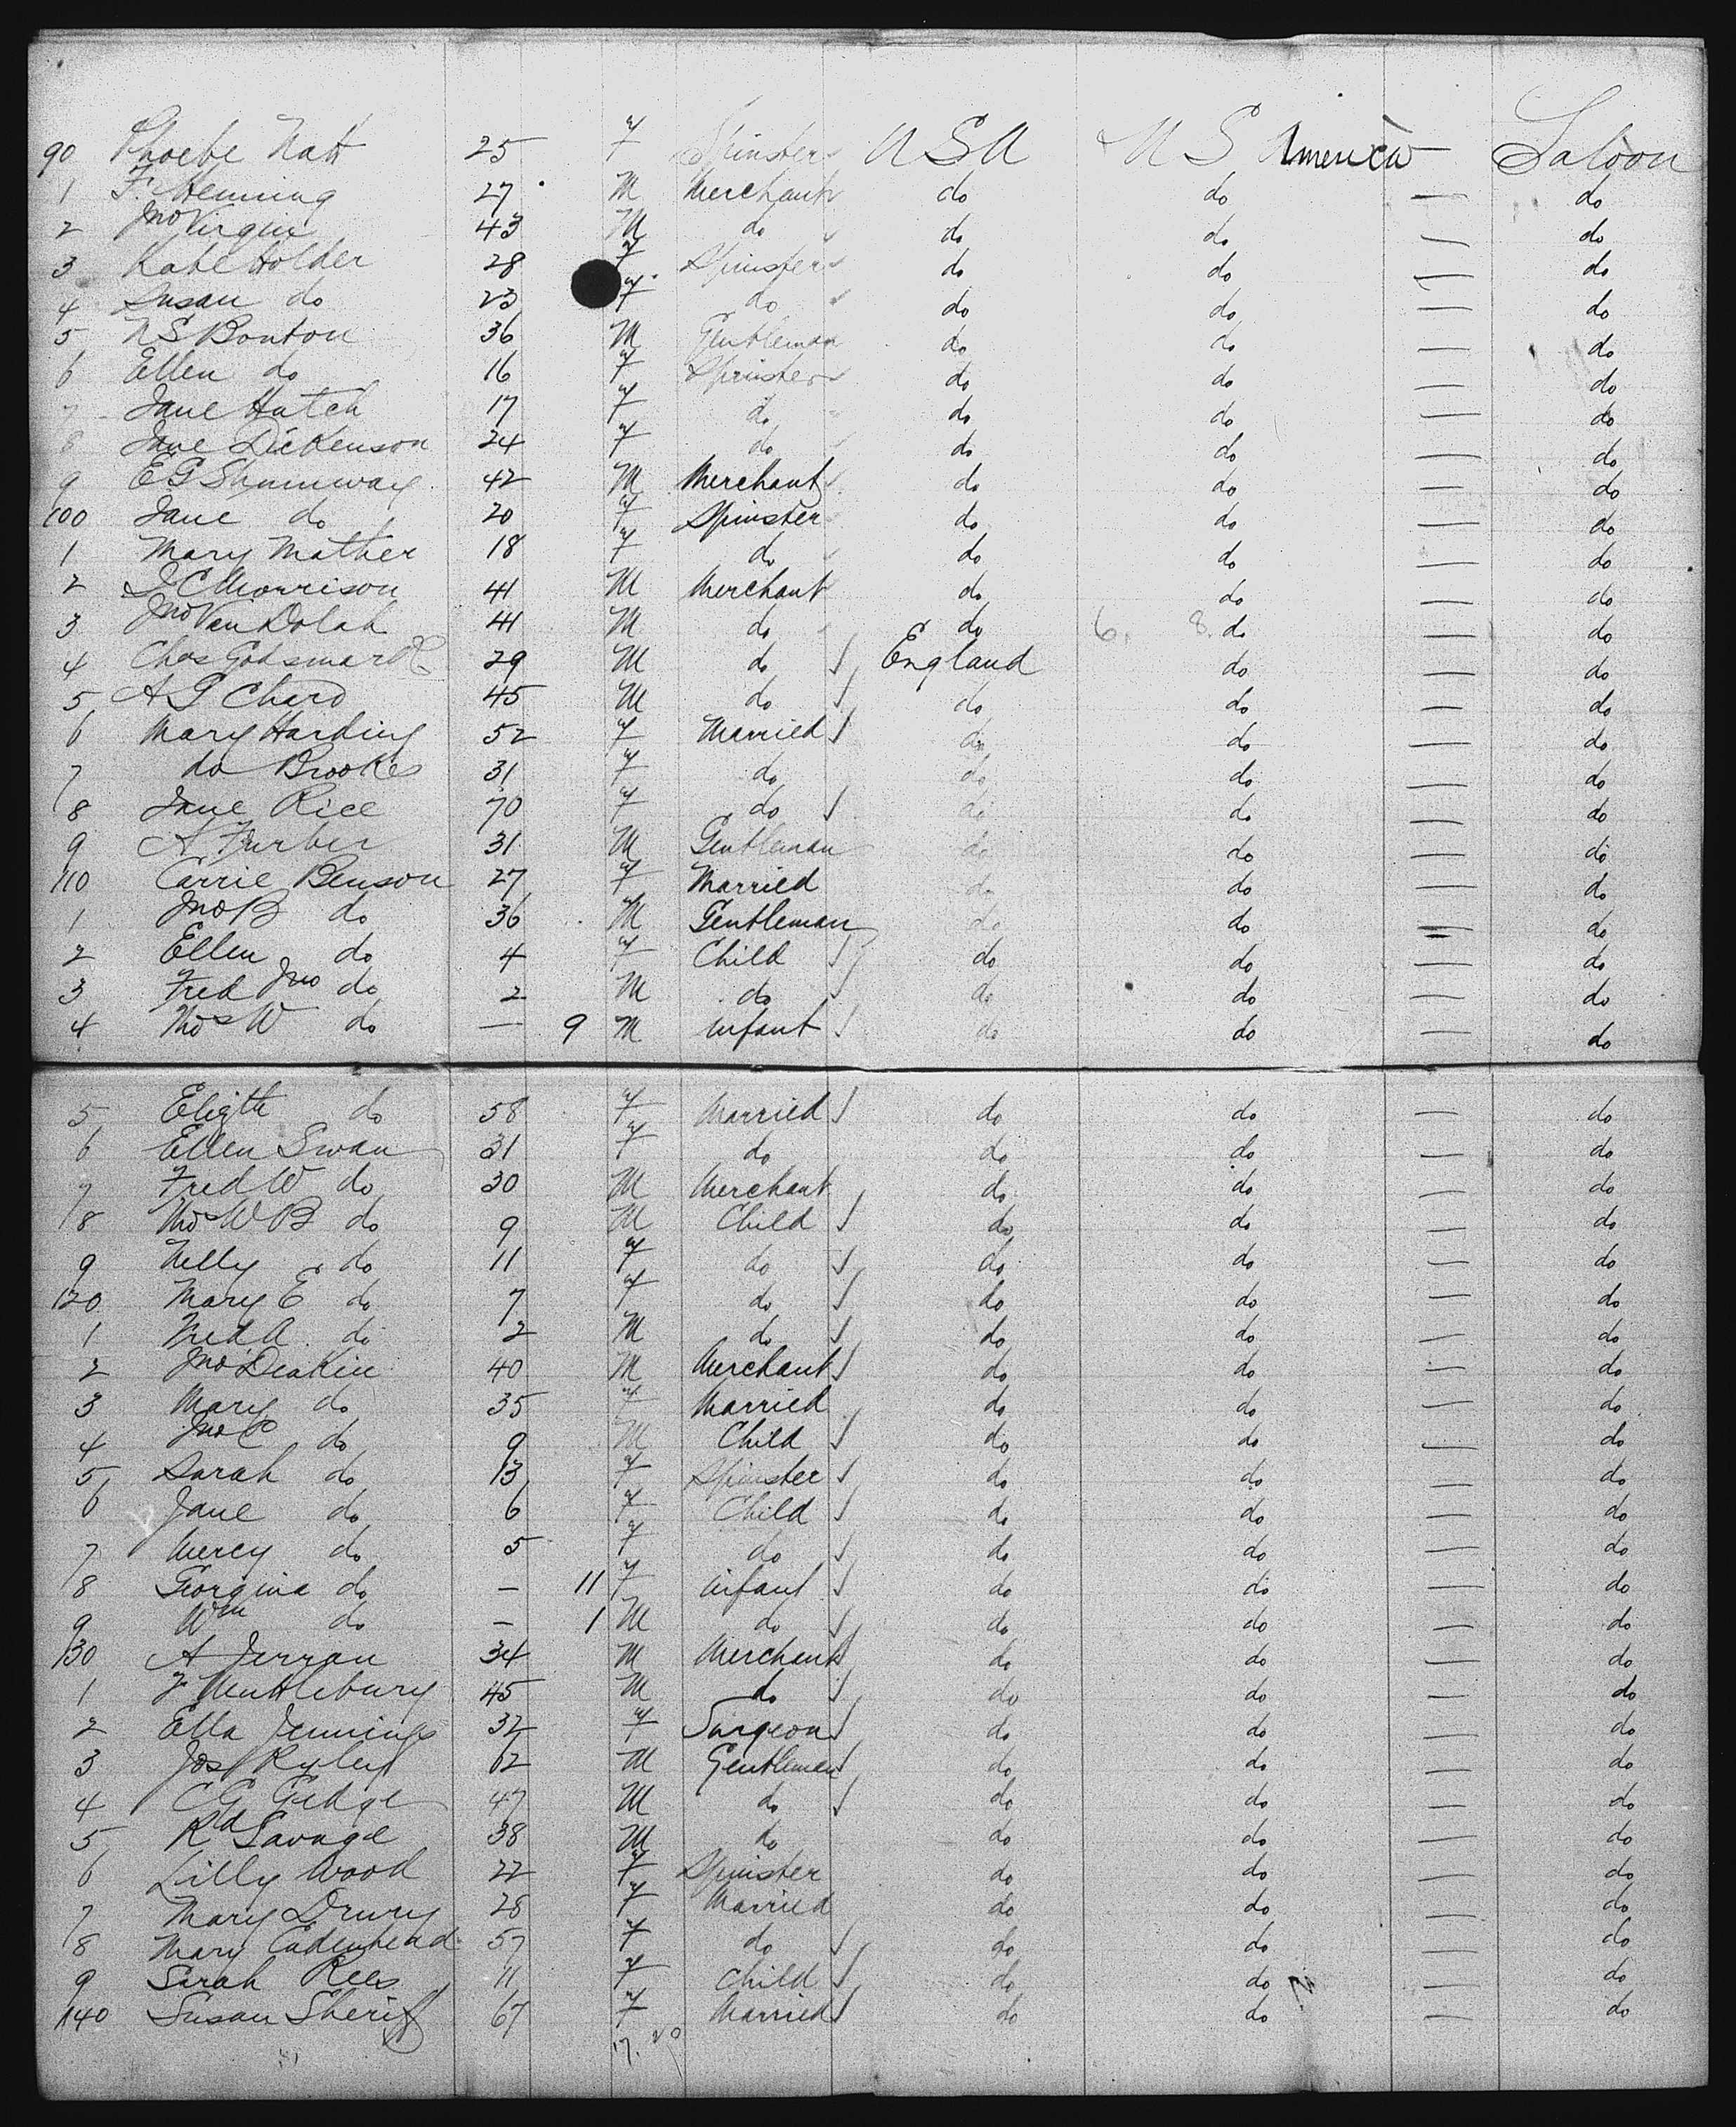 90 Phoebe Natt 25 F Spinster U S A U S America — Saloon
1 F. Henning 27 M Merchant do do — do
2 Jno Virgin 43 M do do do — do
3 Kate Holder 28 F Spinster do do — do
4 Susan do 23 F do do do — do
5 N S Bonton 36 M Gentleman do do — do
6 Ellen do 16 F Spinster do do — do
7 Jane Hatch 17 F do do do — do
8 Jane Dickenson 24 F do do do — do
9 E G Shumway 42 M Merchant do do — do
100 Jane do 20 F Spinster do do — do
1 Mary Mather 18 F do do do — do
2 Morrison 41 M Merchant do do — do
3 Jno Van Dolah 41 M do do 6. 8. do — do
4 Chas Godsmark 29 M do England do — do
5 A G Chard 45 M do do do — do
6 Mary Harding 52 F Married do do — do
7 do Brookes 31 F do do do — do
8 Jane Rice 70 F do do do — do
9 A Furber 31 M Gentleman do do — do
110 Carrie Benson 27 F Married do do — do
1 Jno B do 36 M Gentleman do do — do
2 Ellen do 4 F Child do do — do
3 Fred Jno do 2 M do do do — do
4 Thos W do — 9 M Infant do do — do
5 Elizth do 58 F Married do do — do
6 Ellen Swan 31 F do do do — do
7 Fred W do 30 M Merchant do do — do
8 Thos W B do 9 M Child do do — do
9 Nelly do 11 F do do do — do
120 Mary E do 7 F do do do — do
1 Fred A do 2 M do do do — do
2 Jno Deakin 40 M Merchant do do — do
3 Mary do 35 F Married do do — do
4 Jno C do 9 M Child do do — do
5 Sarah do 13 F Spinster do do — do
6 Jane do 6 F Child do do — do
7 Mercy do 5 F do do do — do
8 Georgina do — 11 F Infant do do — do
9 Wm do — 1 M do do do — do
130 A 34 M Merchant do do — do
1 F Nuttlebury 45 M do do do — do
2 Ella Jennings 32 F Surgeon do do — do
3 Jos Ryley 62 M Gentleman do do — do
4 C G Gedge 47 M do do do — do
5 Rd Savage 38 M do do do — do
6 Lilly Wood 22 F Spinster do do — do
7 Mary Drury 28 F Married do do — do
8 Mary Cadenhead 57 F do do do — do
9 Sarah Rees 11 F Child do do — do
140 Susan Sheriff 67 F Married do do — do